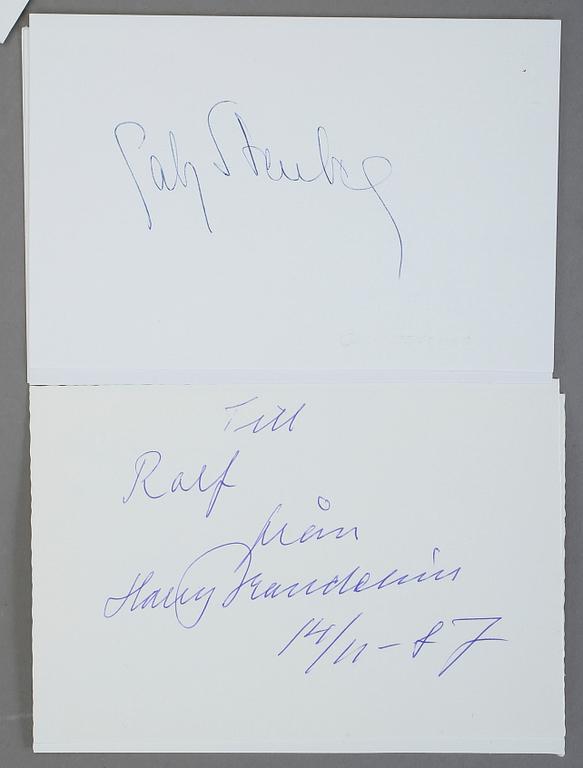 Gaby Stenberg
Till
Ralf
från
Harry Brandelius
14/11-87